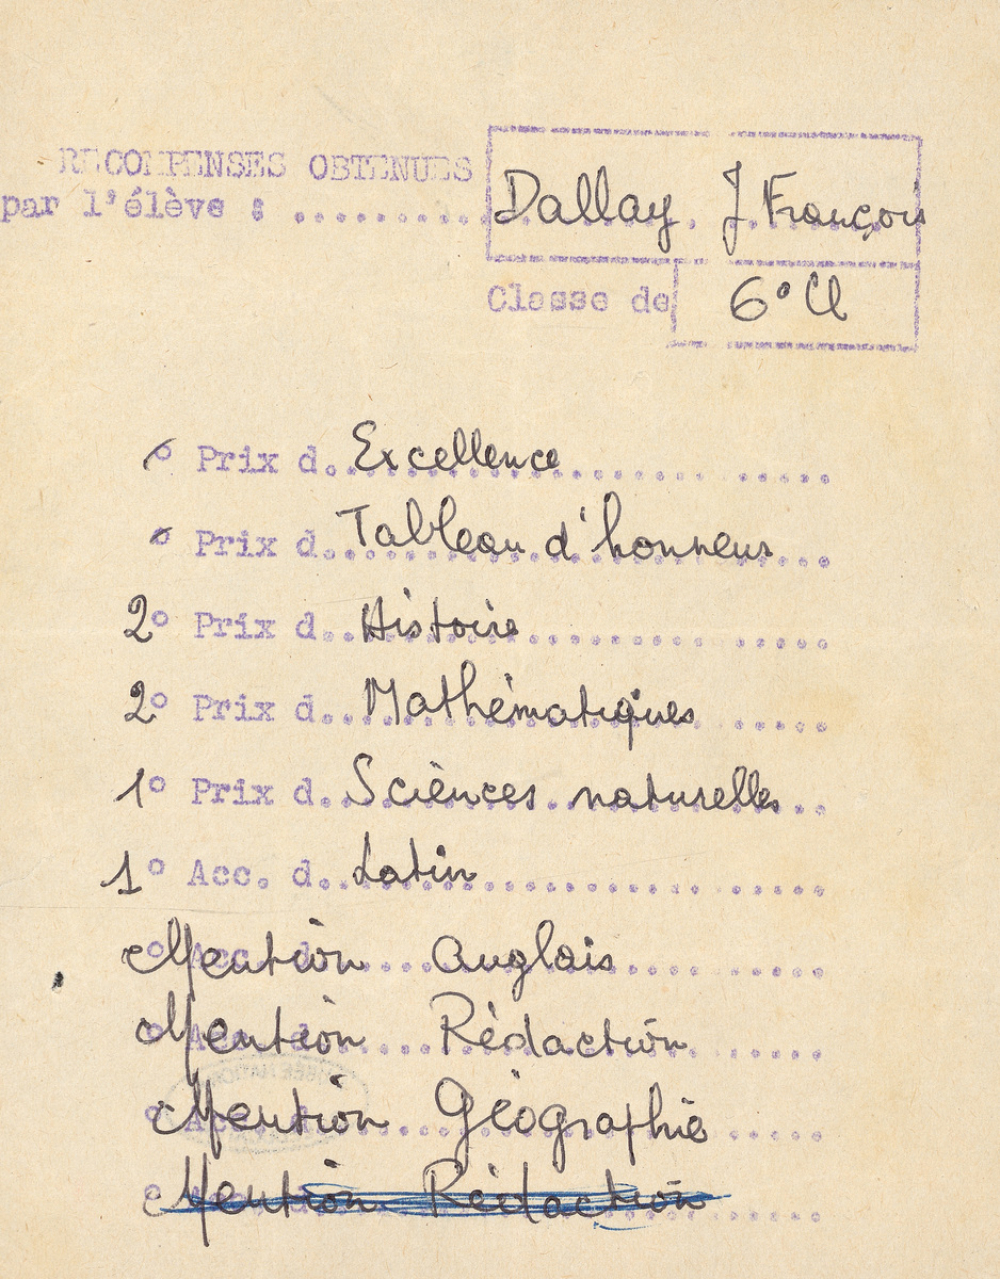 RECOMPENSES OBTENUES
par l'élève : .......... Dallay J. François
Classe de 6° Cl
° Prix d. Excellence
° Prix d. Tableau d'honneur
2° Prix d. Histoire
2° Prix d. Mathématiques
1° Prix d. Sciences naturelles
1° Acc. d. Latin
Mention Anglais
Mention Rédaction
Mention Géographie
Mention Rédaction